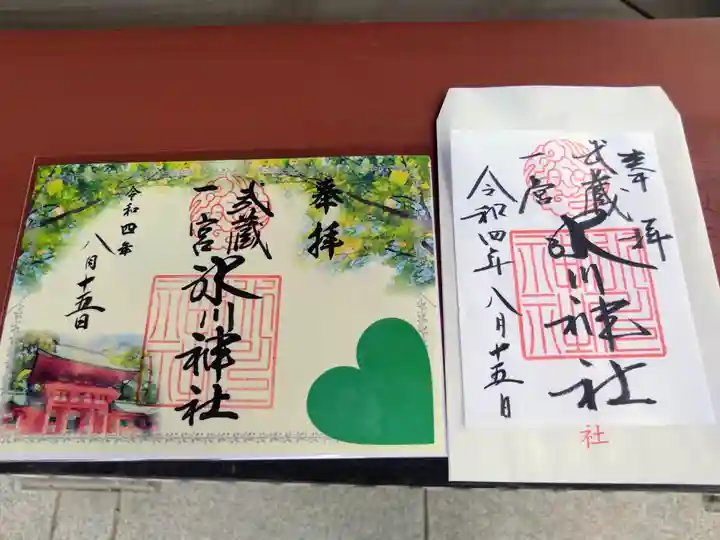 奉拝
武蔵
一宮
氷川神社
令和四年
八月十五日
奉拝
武蔵
一宮
氷川神社
令和四年八月十五日
社